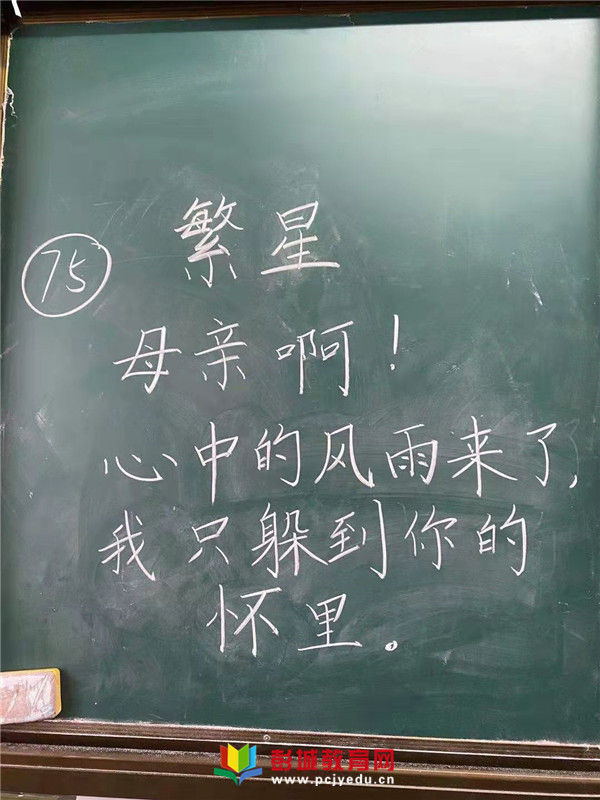 繁星
75
母亲啊！
心中的风雨来了，
我只躲到你的
怀里。
彭城教育网
www.pcjyedu.cn